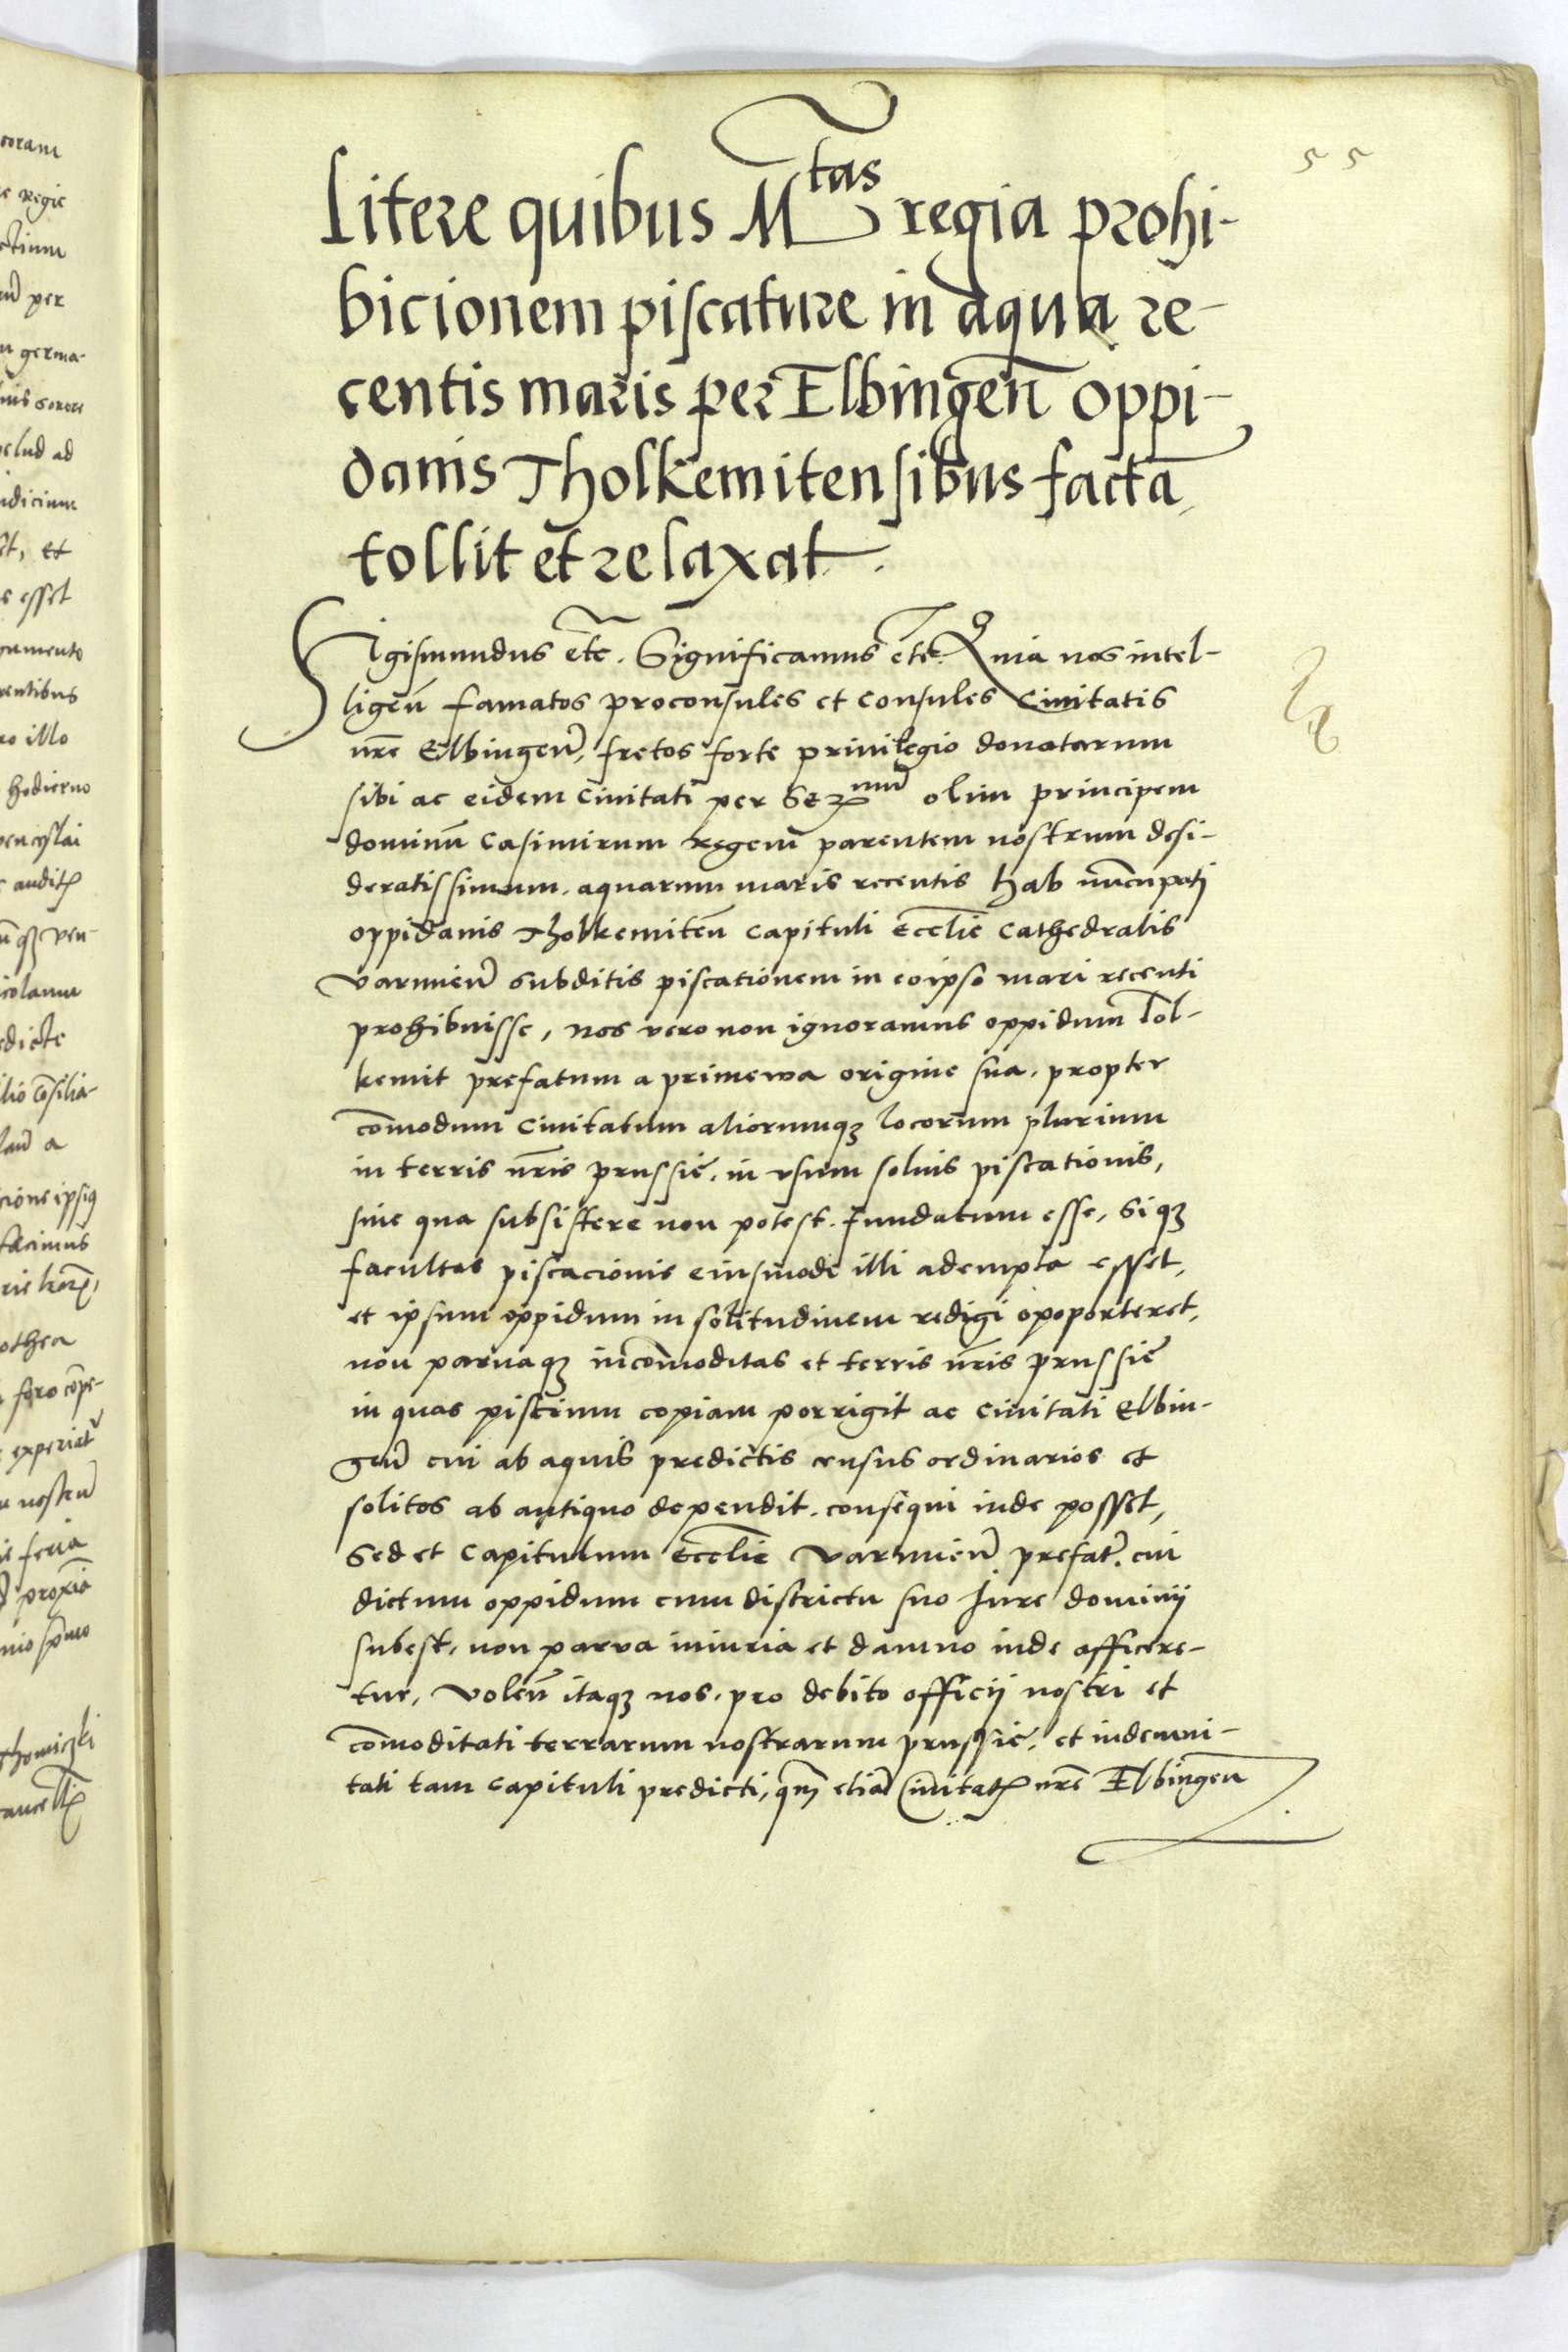 55
Litere quibus M^tas regia prohi-
bicionem piscature in aqua re-
centis maris per Elbingen̄ oppi-
danis Tholkemitensibus facta
tollit et relaxat.
Sigismundus etc̄. Significamus etc̄. Quia nos intel-
ligen̄ famatos proconsules et consules Civitatis
nr̄e Elbingen̄, fretos forte privilegio donatarum
sibi ac eidem Civitati per Ser^mum olim principem
dominū Casimirum regem parentem nostrum desi-
deratissimum, aquarum maris recentis hab nuncupati
oppidanis Tholkemiten̄ Capituli Ecclīe Cathedralis
Varmien̄ subditis piscationem in eoipso mari recenti
prohibuisse, nos vero non ignoramus oppidum Tol-
kemit prefatum a primeva origine sua, propter
com̄odum Civitatum aliorumqꝫ locorum plurium
in terris nr̄is prussie, in usum solius piscationis,
sine qua subsistere non potest, fundatum esse, siqꝫ
facultas piscacionis eiusmodi illi adempta esset,
et ipsum oppidum in solitudinem redigi opoporteret,
non parvaqꝫ incom̄oditas et terris nr̄is prussie
in quas piscium copiam porrigit ac Civitati Elbin-
gen̄ cui ab aquis predictis census ordinarios et
solitos ab antiquo dependit, consequi inde posset,
Sed et Capitulum Ecclīe Varmien̄ prefat. cui
dictum oppidum cum districtu suo Jure dominij
subest, non parva iniuria et damno inde afficere-
tur, Volen̄ itaqꝫ nos, pro debito officij nostri et
com̄oditati terrarum nostrarum prussie, et indemni-
tati tam Capituli predicti, qm̄ etiā Civitatꝭ nr̄e Elbingen̄